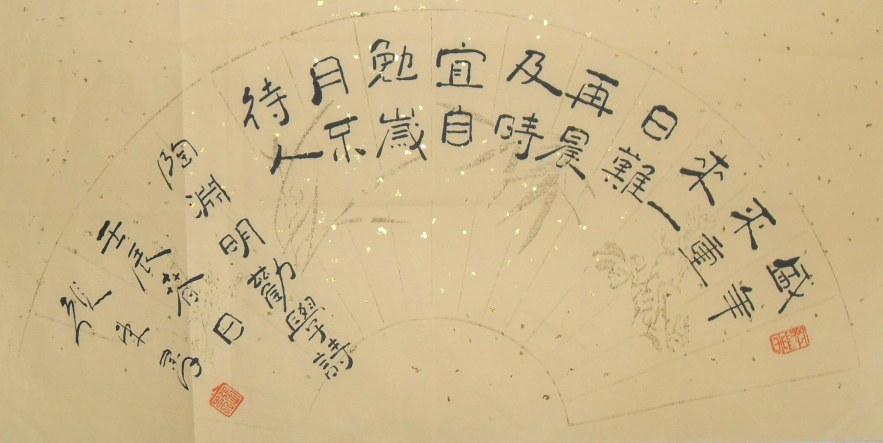 盛年
不重
來一
日難
再晨
及時
宜自
勉歲
月不
待人
陶淵明勸學詩
壬辰春日